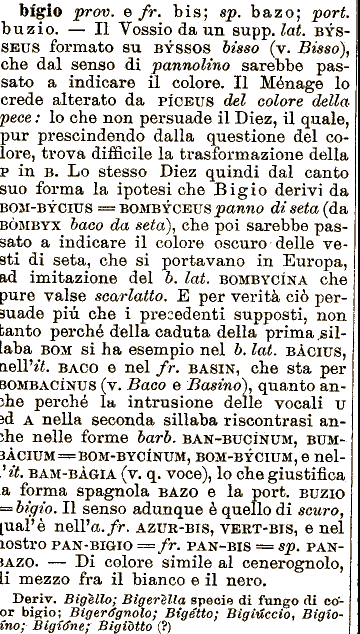 bígio prov. e fr. bis; sp. bazo; port.
buzio. — Il Vossio da un supp. lat. BÝS-
SEUS formato su BÝSSOS bisso (v. Bisso),
che dal senso di pannolino sarebbe pas-
sato a indicare il colore. Il Ménage lo
crede alterato da PÍCEUS del colore della
pece: lo che non persuade il Diez, il quale,
pur prescindendo dalla questione del co-
lore, trova difficile la trasformazione della
P in B. Lo stesso Diez quindi dal canto
suo forma la ipotesi che Bigio derivi da
BOM-BÝCIUS = BOMBÝCEUS panno di seta (da
BÒMBYX baco da seta), che poi sarebbe pas-
sato a indicare il colore oscuro delle ve-
sti di seta, che si portavano in Europa,
ad imitazione del b. lat. BOMBYCÍNA che
pure valse scarlatto. E per verità ciò per-
suade piú che i precedenti supposti, non
tanto perché della caduta della prima sil-
laba BOM si ha esempio nel b. lat. BÀCIUS,
nell'it. BACO e nel fr. BASIN, che sta per
BOMBACÍNUS (v. Baco e Basino), quanto an-
che perché la intrusione delle vocali U
ed A nella seconda sillaba riscontrasi an-
che nelle forme barb. BAN-BUCÍNUM, BUM-
BÀCIUM = BOM-BYCÍNUM, BOM-BÝCIUM, e nel-
l'it. BAM-BÀGIA (v. q. voce), lo che giustifica
la forma spagnola BAZO e la port. BUZIO
= bigio. Il senso adunque è quello di scuro,
qual'è nell'a. fr. AZUR-BIS, VERT-BIS, e nel
nostro PAN-BIGIO = fr. PAN-BIS = sp. PAN-
BAZO. — Di colore simile al cenerognolo,
di mezzo fra il bianco e il nero.
Deriv. Bigèllo; Bigerèlla specie di fungo di co-
lor bigio; Bigerógnolo; Bigétto; Bigiúccio, Bigio-
lino; Bigióne; Bigiòtto (?)